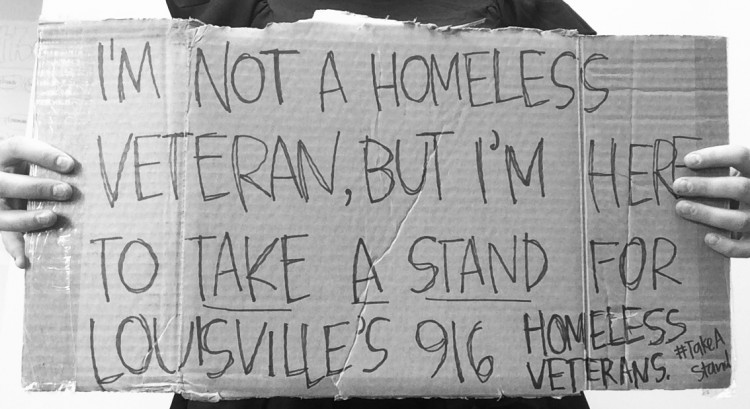 I'M NOT A HOMELESS
VETERAN, BUT I'M HERE
TO TAKE A STAND FOR
LOUISVILLE'S 916 HOMELESS
VETERANS.
#TakeA
Stand